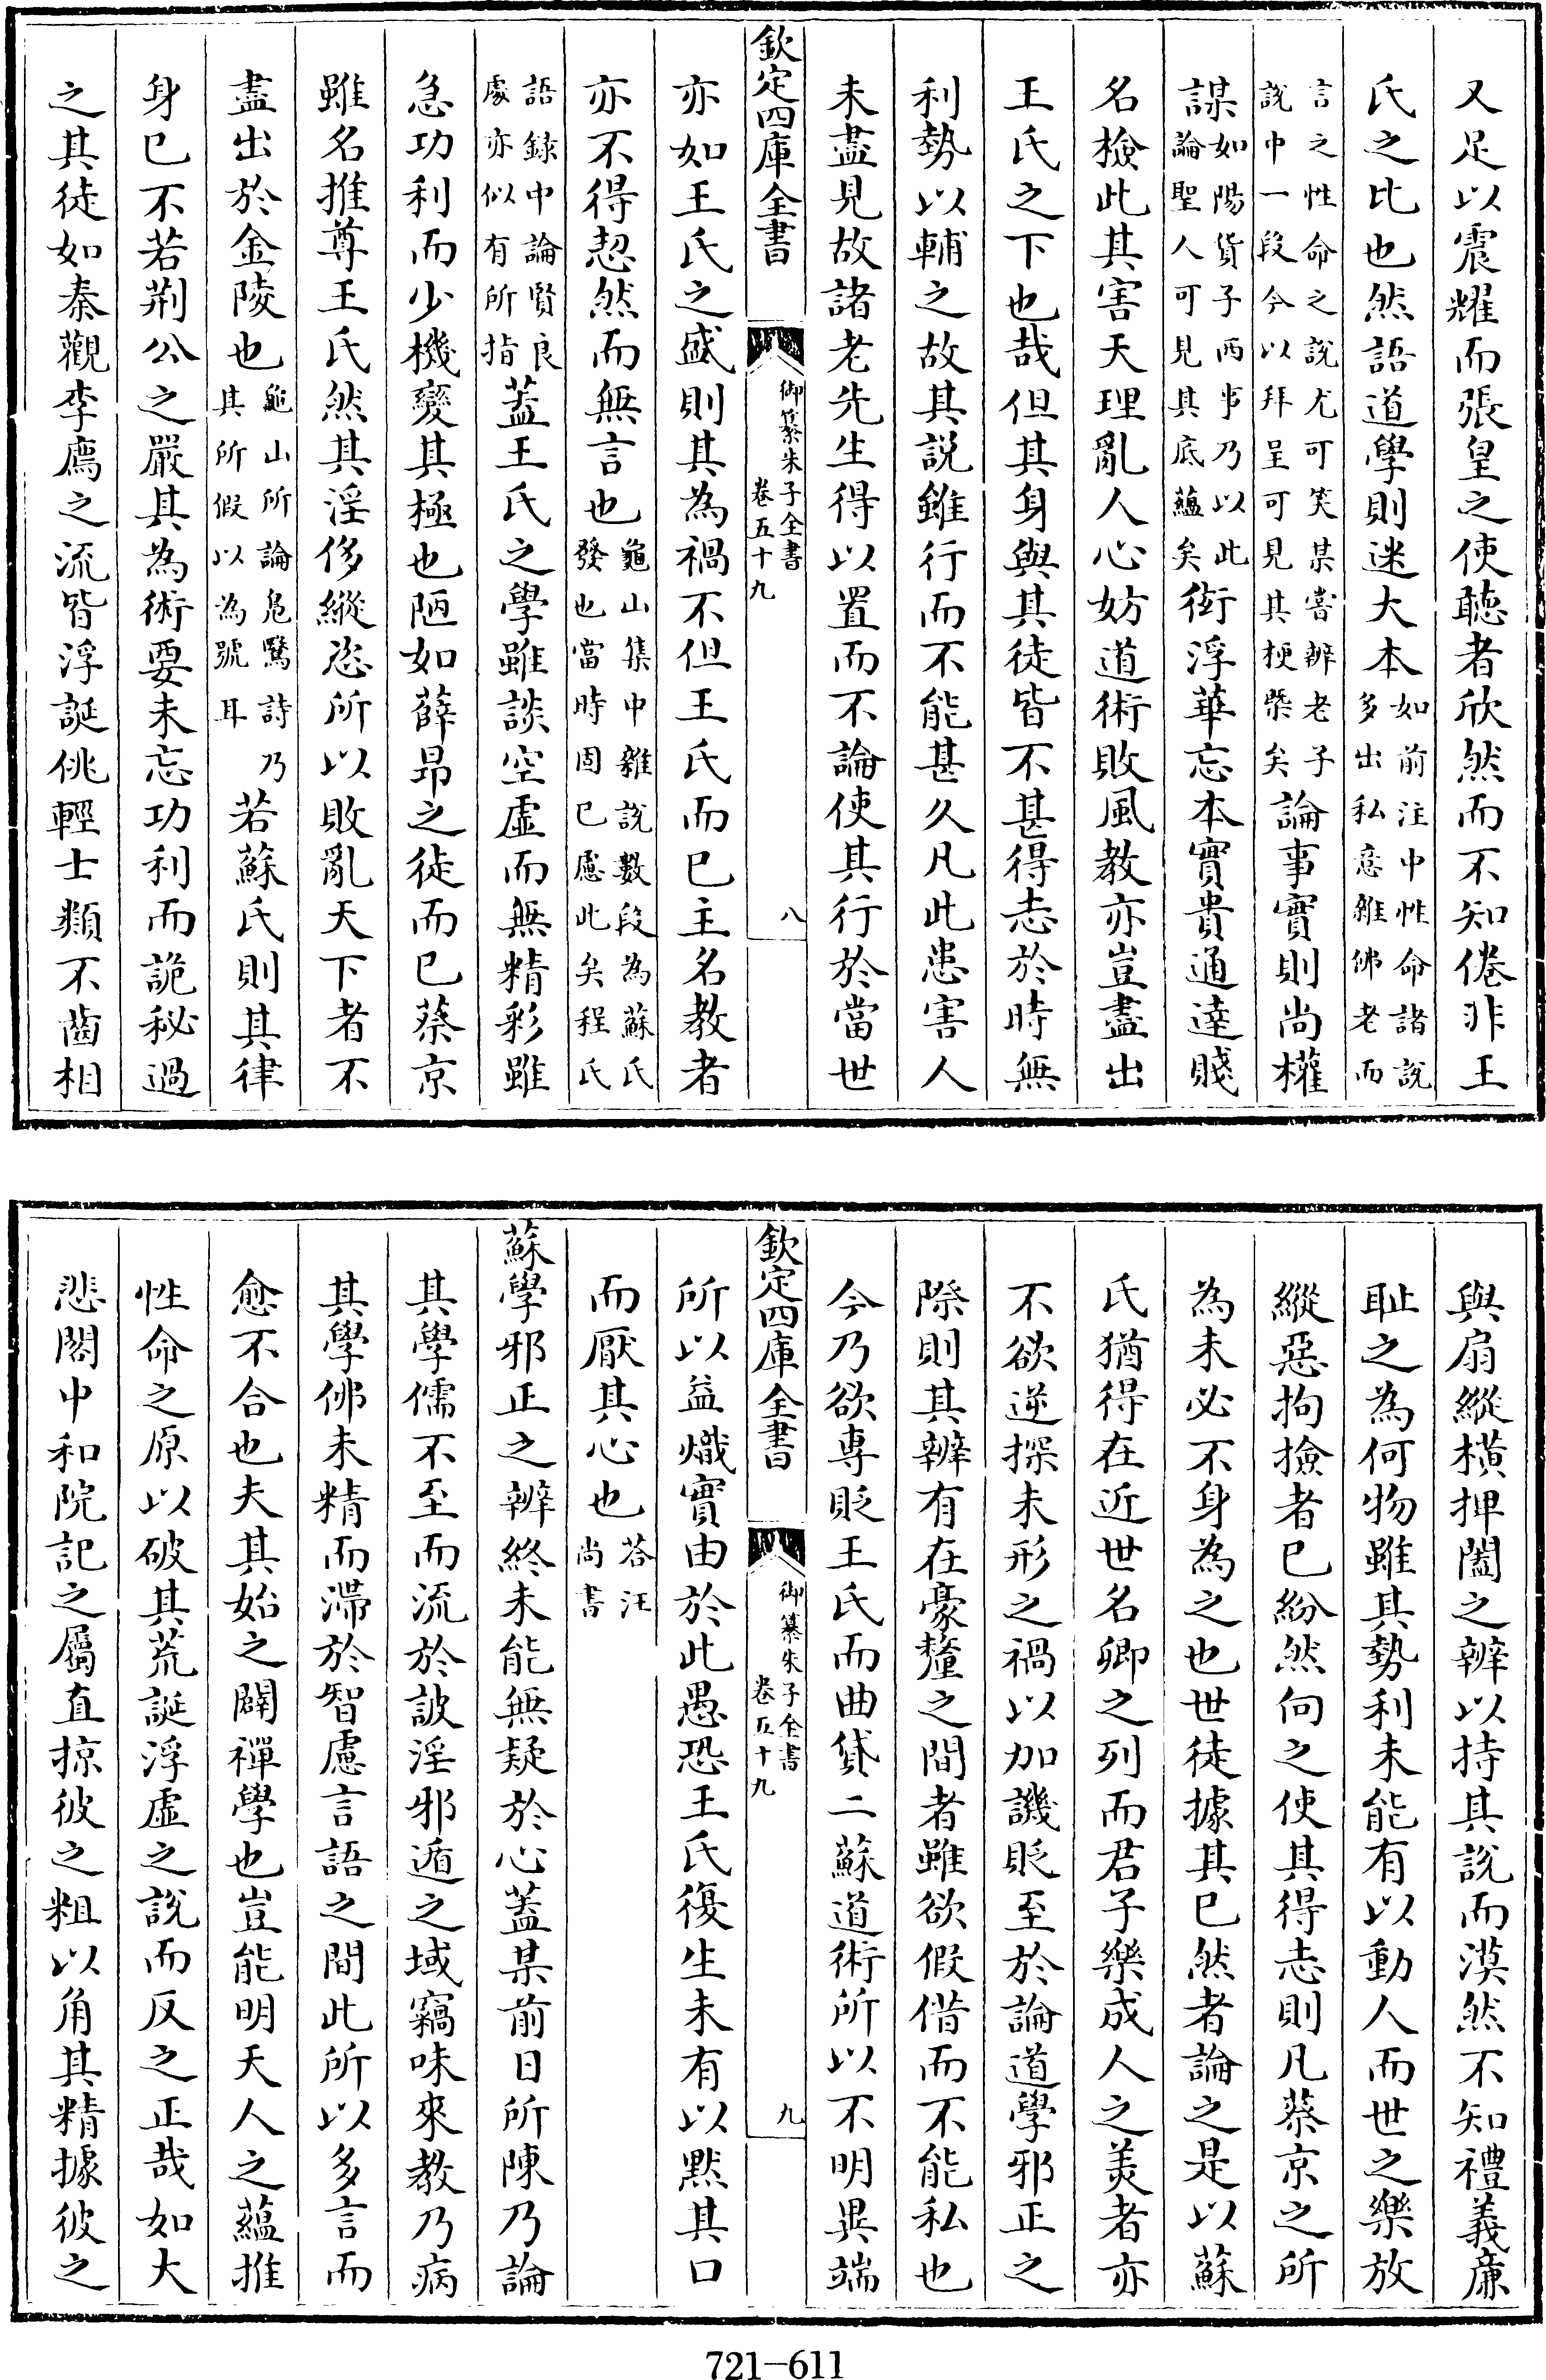 又足以震耀而張皇之使聽者欣然而不知倦非王
氏之比也然語道學則迷大本如前注中性命諸說多出私意雜佛老而
言之性命之說尤可笑某嘗辨老子說中一段今以拜呈可見其梗槩矣論事實則尚權
謀如陽貨子西事乃以此論聖人可見其底蘊矣衒浮華忘本實貴通達賤
名檢此其害天理亂人心妨道術敗風教亦豈盡出
王氏之下也哉但其身與其徒皆不甚得志於時無
利勢以輔之故其說雖行而不能甚久凡此患害人
未盡見故諸老先生得以置而不論使其行於當世
欽定四庫全書
御纂朱子全書
卷五十九
八
亦如王氏之盛則其為禍不但王氏而已主名教者
亦不得恝然而無言也龜山集中雜說數段為蘇氏發也當時固已慮此矣程氏
語録中論賢良處亦似有所指蓋王氏之學雖談空虛而無精彩雖
急功利而少機變其極也陋如薛昂之徒而已蔡京
雖名推尊王氏然其淫侈縱恣所以敗亂天下者不
盡出於金陵也龜山所論鳬鷖詩乃其所假以為號耳若蘇氏則其律
身已不若荆公之嚴其為術要未忘功利而詭秘過
之其徒如秦觀李廌之流皆浮誕佻輕士類不齒相
與扇縱橫捭闔之辨以持其說而漠然不知禮義廉
耻之為何物雖其勢利未能有以動人而世之樂放
縱惡拘撿者已紛然向之使其得志則凡蔡京之所
為未必不身為之也世徒據其已然者論之是以蘇
氏猶得在近世名卿之列而君子樂成人之美者亦
不欲逆探未形之禍以加譏貶至於論道學邪正之
際則其辨有在豪釐之間者雖欲假借而不能私也
今乃欲專貶王氏而曲貸二蘇道術所以不明異端
欽定四庫全書
御纂朱子全書
卷五十九
九
所以益熾實由於此愚恐王氏復生未有以黙其口
而厭其心也荅汪尚書
蘇學邪正之辨終未能無疑於心蓋某前日所陳乃論
其學儒不至而流於詖淫邪遁之域竊味來教乃病
其學佛未精而滯於智慮言語之間此所以多言而
愈不合也夫其始之闢禪學也豈能明天人之蘊推
性命之原以破其荒誕浮虛之說而反之正哉如大
悲閣中和院記之屬直掠彼之粗以角其精據彼之
721—611